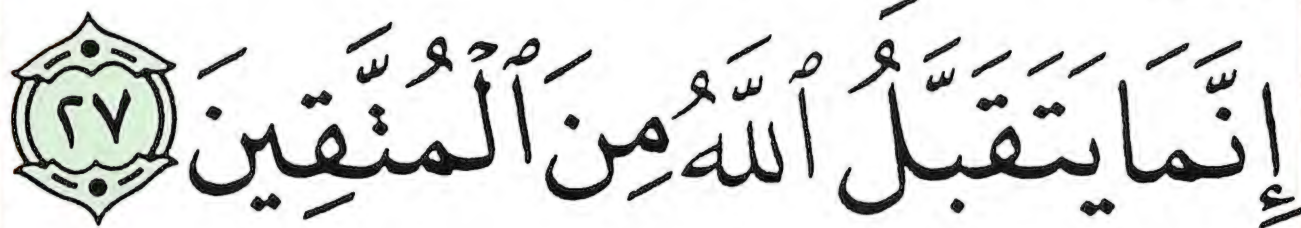 إِنَّمَا يَتَقَبَّلُ ٱللَّهُ مِنَ ٱلْمُتَّقِينَ ٢٧